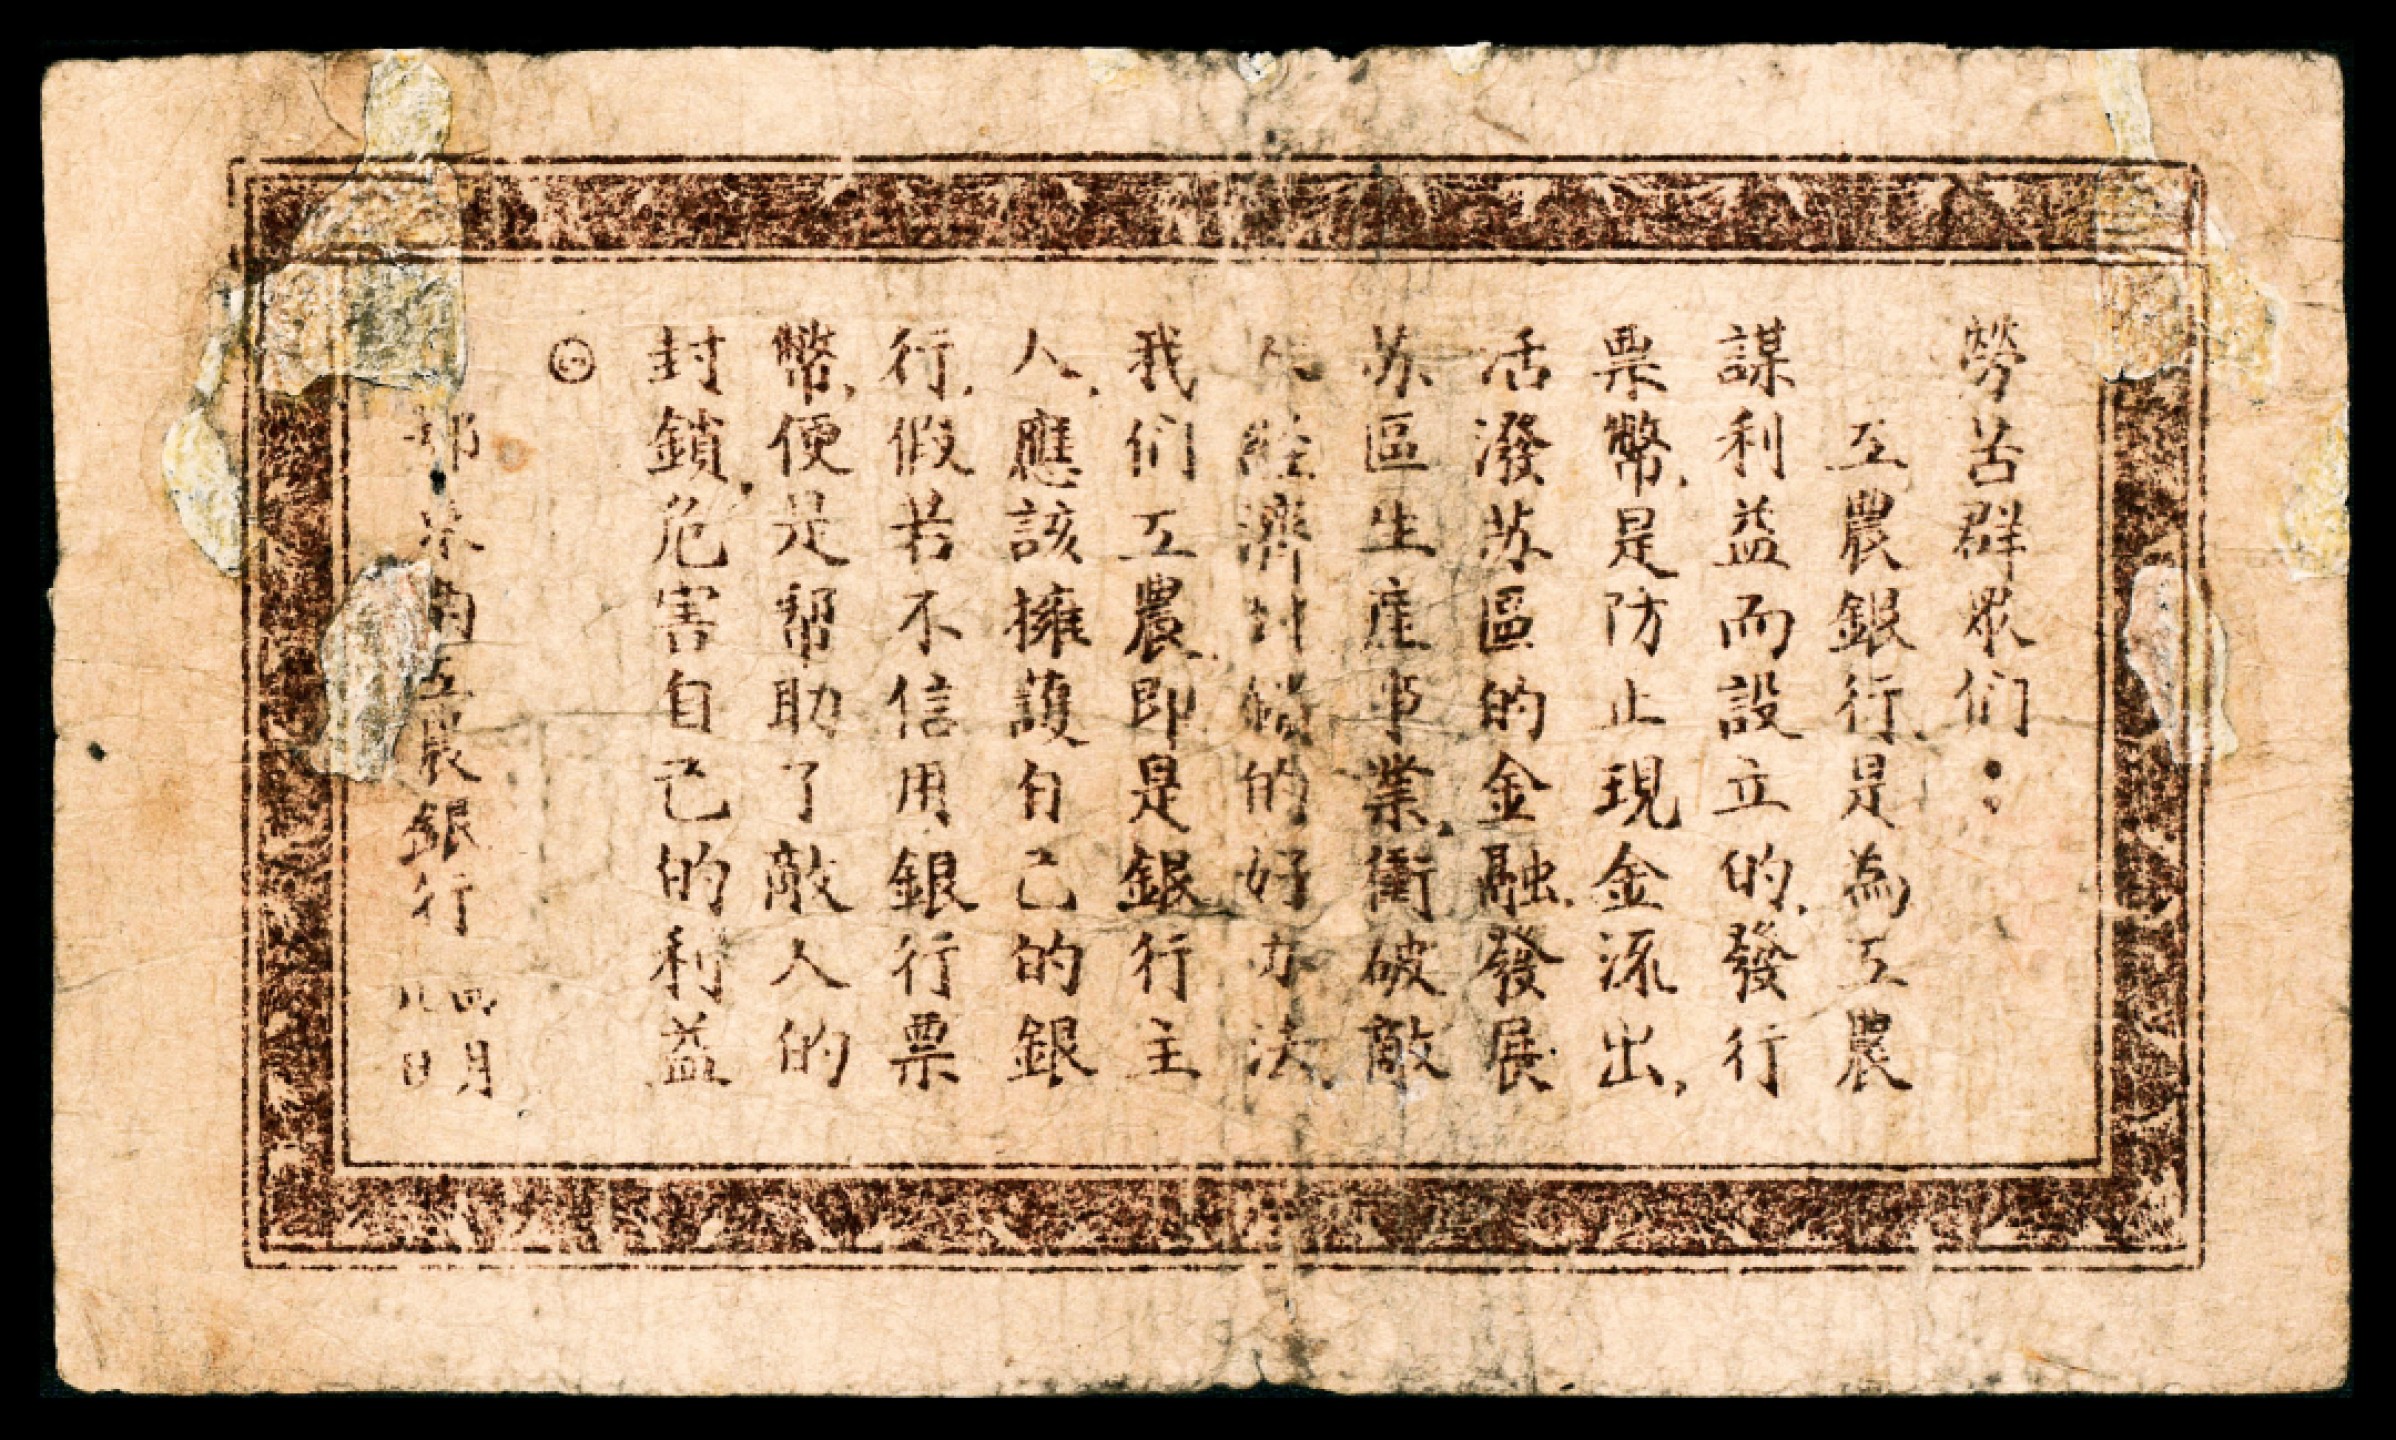 勞苦群眾们：
工農銀行是為工農
謀利益而設立的、發行
票幣、是防止現金流出、
活潑苏區的金融、發展
苏區生產事業、衝破敵
人經濟封鎖的好办法、
我们工農、即是銀行主
人、應該擁護自己的銀
行、假若不信用銀行票
幣、便是幫助了敵人的
封鎖、危害自己的利益
◎
鄂 南工農銀行 四月 日